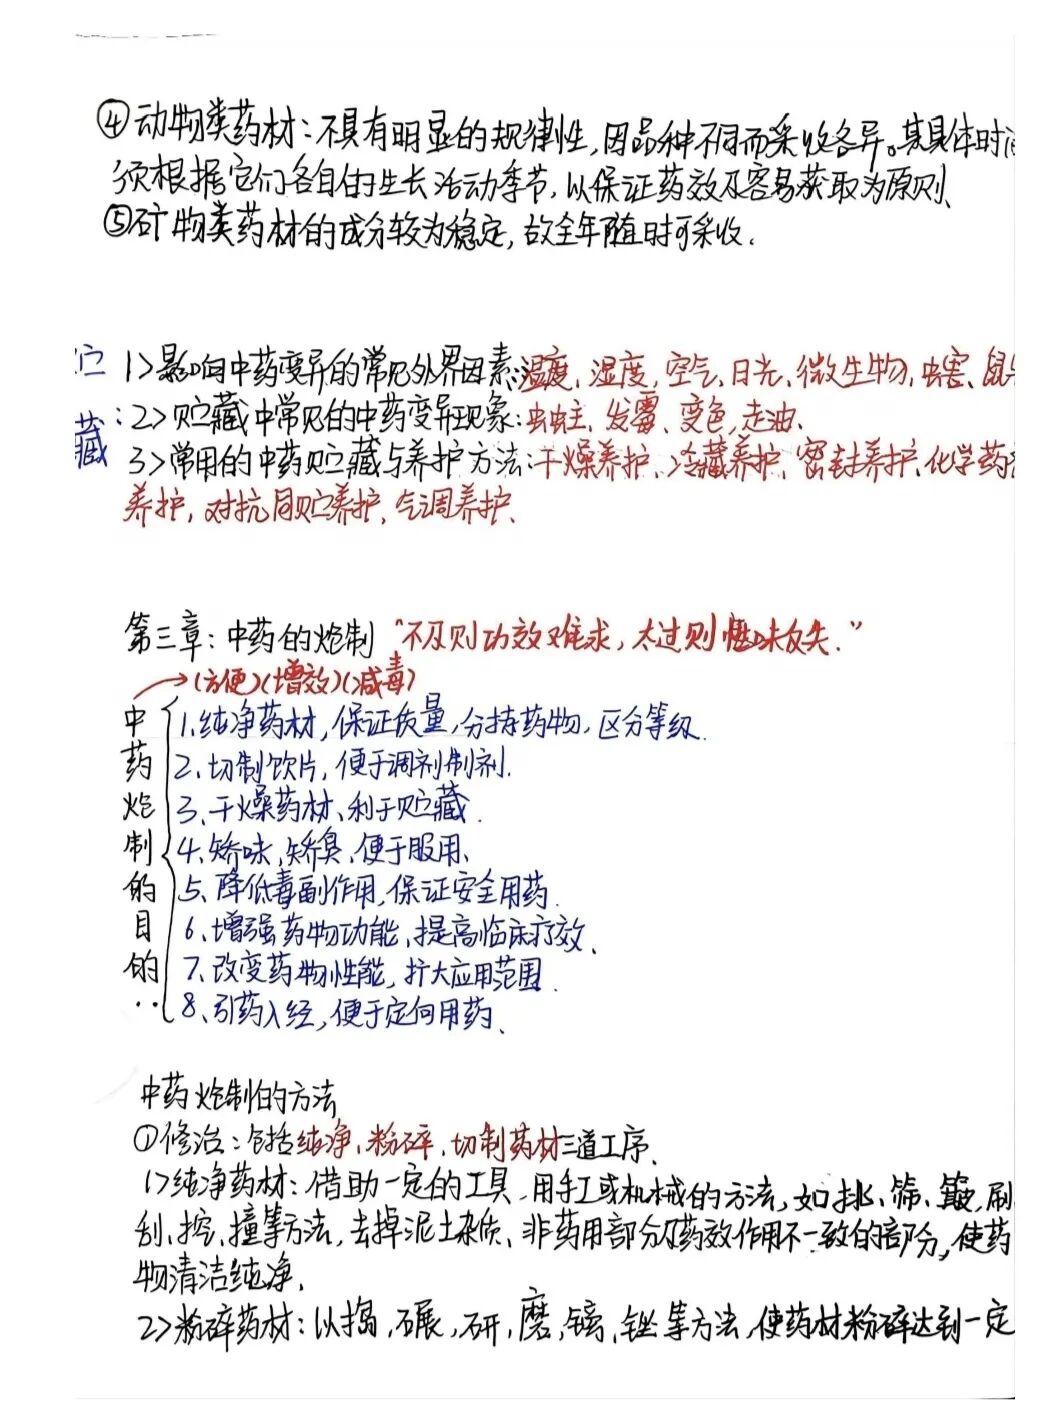 ④动物类药材:不具有明显的规律性,因品种不同而采收各异。其具体时间
须根据它们各自的生长活动季节,以保证药效及容易获取为原则、
⑤矿物类药材的成分较为稳定,故全年随时可采收.
贮藏:
1>影响中药变异的常见外界因素:温度、湿度、空气、日光、微生物、虫害、鼠
2>贮藏中常见的中药变异现象:虫蛀、发霉、变色,走油、
3>常用的中药贮藏与养护方法:干燥养护、冷藏养护、密封养护、化学药
养护,对抗同贮养护、气调养护、
第三章:中药的炮制 “不及则功效难求,太过则性味反失.”
(方便)(增效)(减毒)
中药炮制的目的:
1.纯净药材,保证质量,分拣药物,区分等级.
2、切制饮片,便于调剂制剂.
3、干燥药材、利于贮藏.
4、矫味、矫臭、便于服用、
5、降低毒副作用,保证安全用药.
6、增强药物功能、提高临床疗效、
7、改变药物性能,扩大应用范围.
8、引药入经,便于定向用药、
中药炮制的方法
①修治:包括纯净、粉碎、切制药材三道工序、
1>纯净药材:借助一定的工具,用手工或机械的方法,如挑、筛、簸,刷
刮、挖、撞等方法,去掉泥土杂质、非药用部分及药效作用不一致的部分,使药
物清洁纯净、
2>粉碎药材:以捣,碾,研,磨,镑,锉等方法,使药材粉碎达到一定